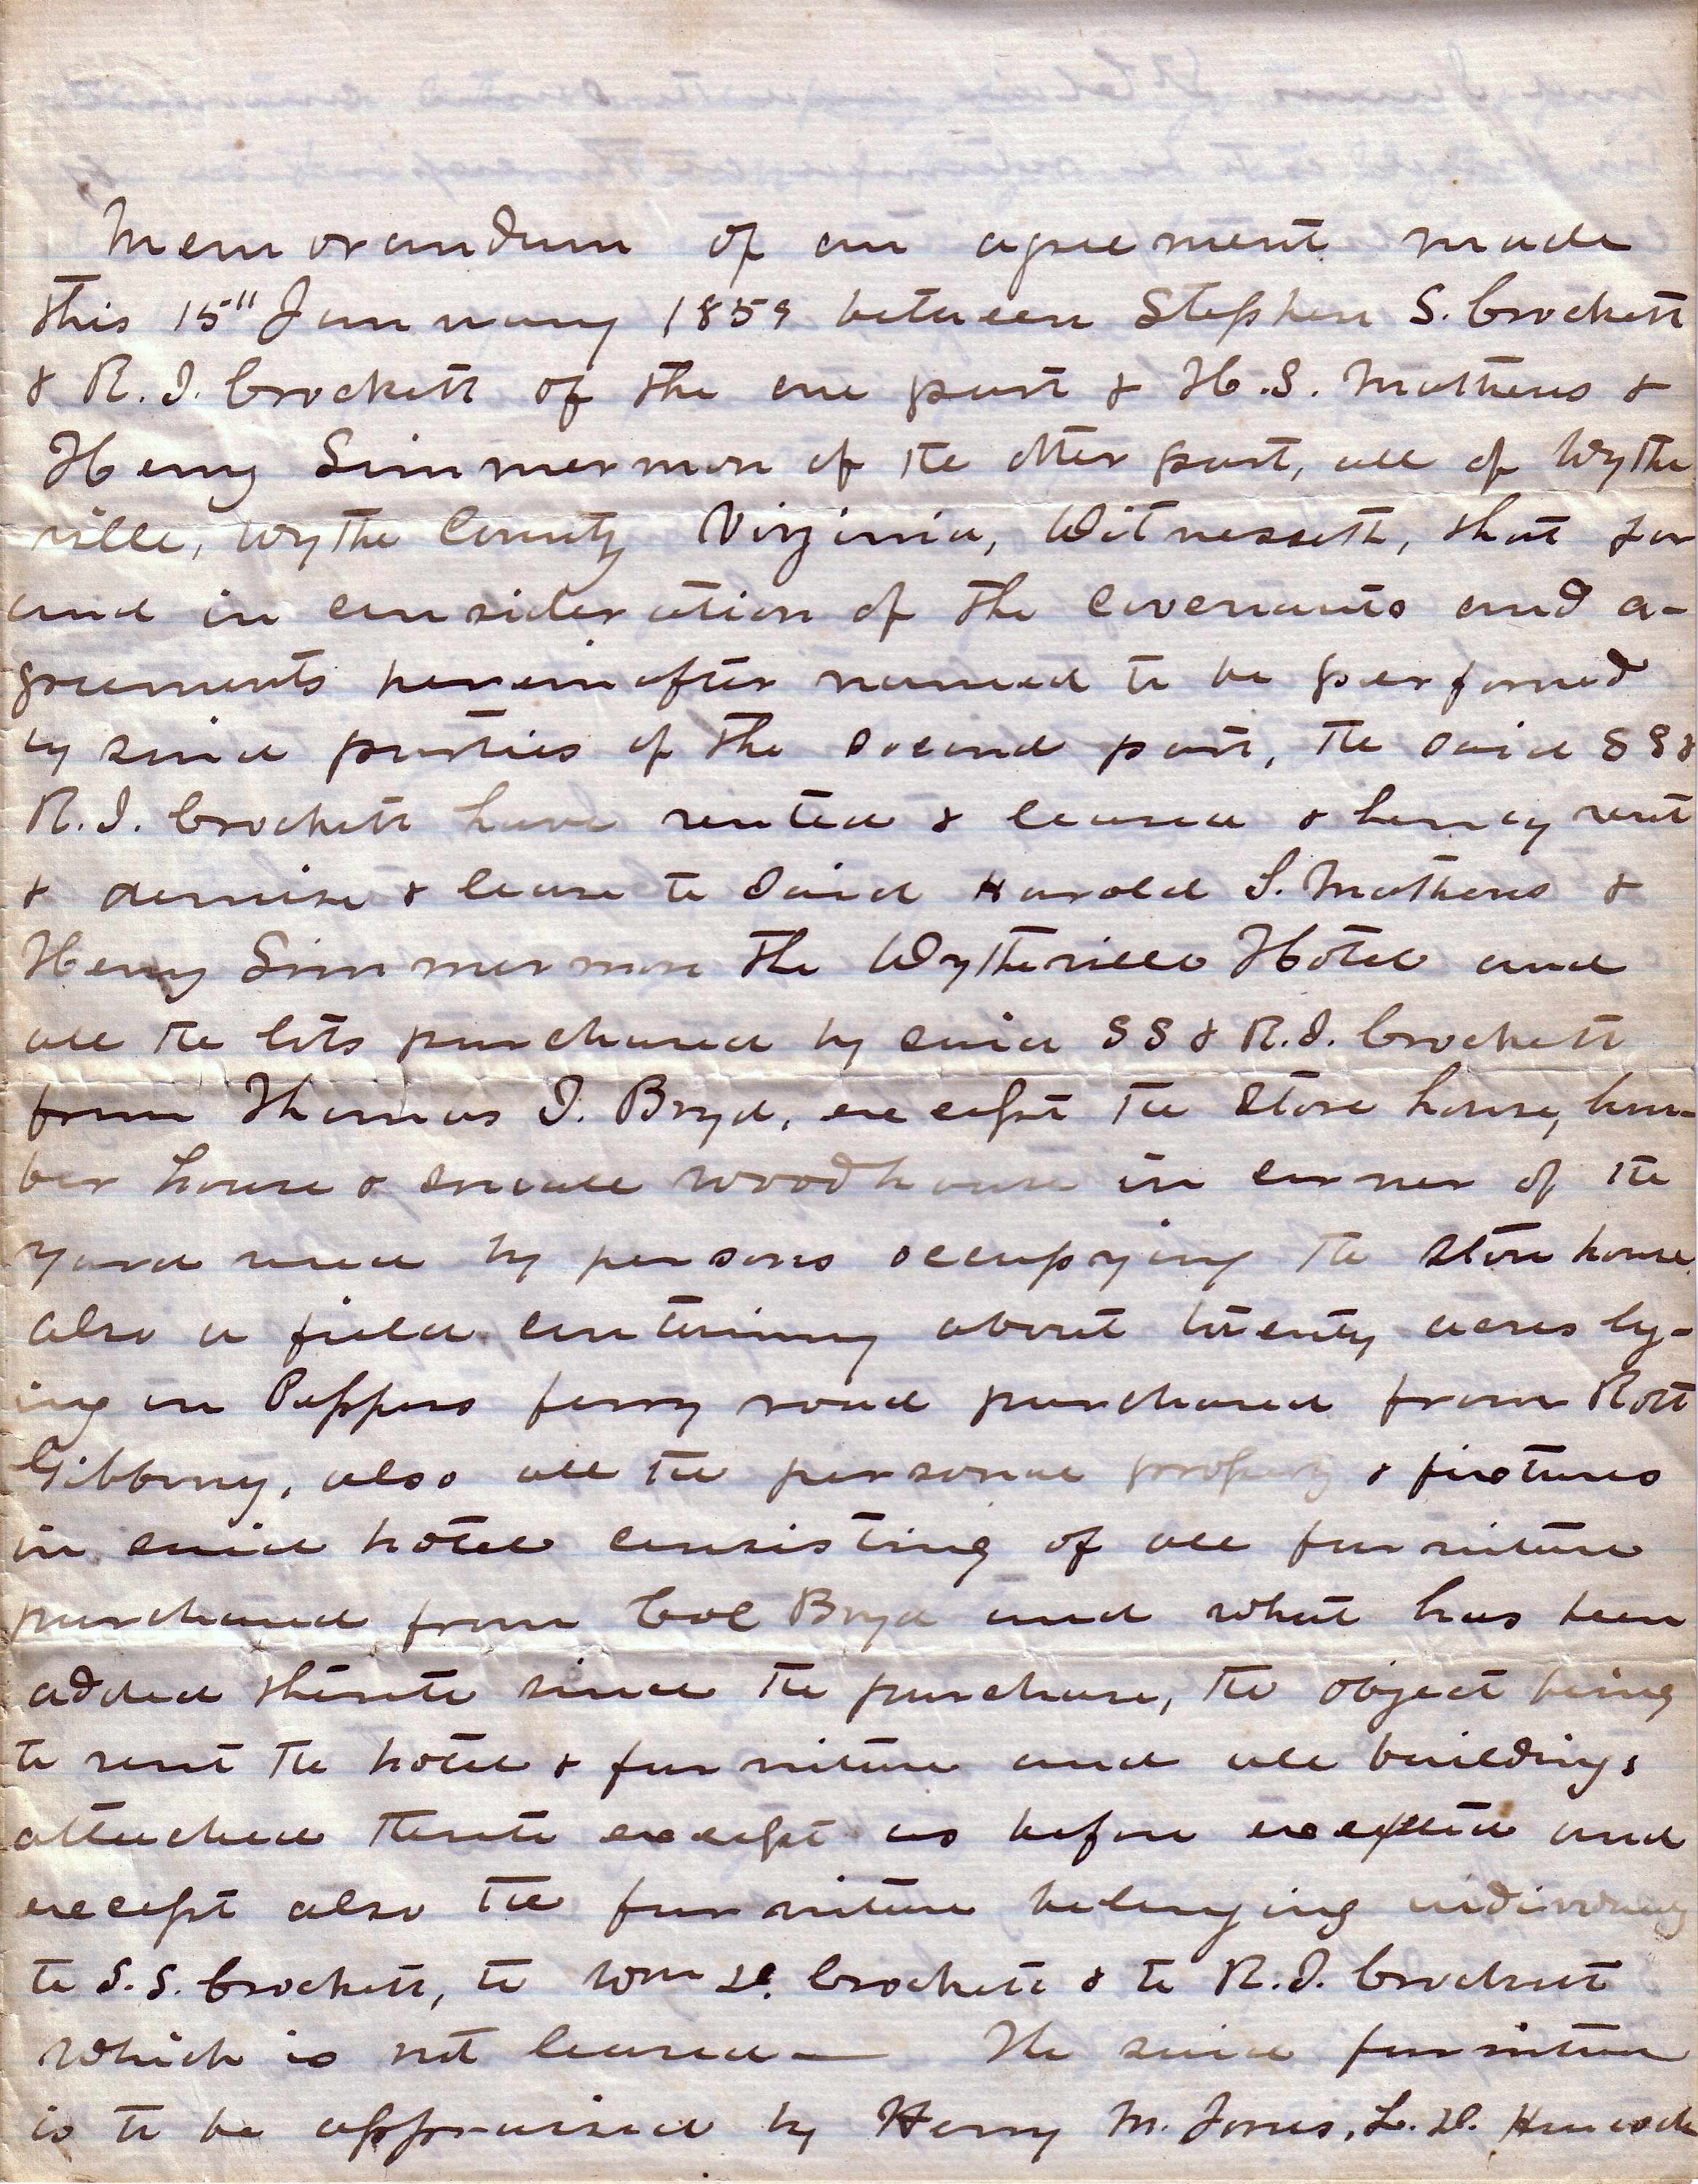 Memorandum of an agreement made
this 15" January 1859 between Stephen S. Crockett
& R. I. Crockett of the one part & H. S. Mathews &
Henry Simmerman of the other part, all of Wythe
ville, Wythe County Virginia, Witnesseth, that for
and in consideration of the covenants and a-
greements hereinafter named to be performed
by said parties of the second part, the said S S &
R. I. Crockett have rented & leased & hereby rent
& demise & lease to said Harold S. Mathews &
Henry Simmerman the Wytheville Hotel and
all the lots purchased by said S S & R. I. Crockett
from Thomas I. Boyd, except the Store house, lum-
ber house & small woodhouse in corner of the
yard used by persons occupying the store house
also a field containing about twenty acres ly-
ing on Peppers ferry road purchased from Robt
Gibboney, also all the personal property & fixtures
in said hotel consisting of all furniture
purchased from Col Boyd and what has been
added thereto since the purchase, the object being
to rent the hotel & furniture and all buildings
attached thereto except as before excepted and
except also the furniture belonging
to S. S. Crockett, to Wm D. Crockett & to R. I. Crockett
which is not leased — The said furniture
is to be appraised by Henry M. Jones, L. D. Hancock